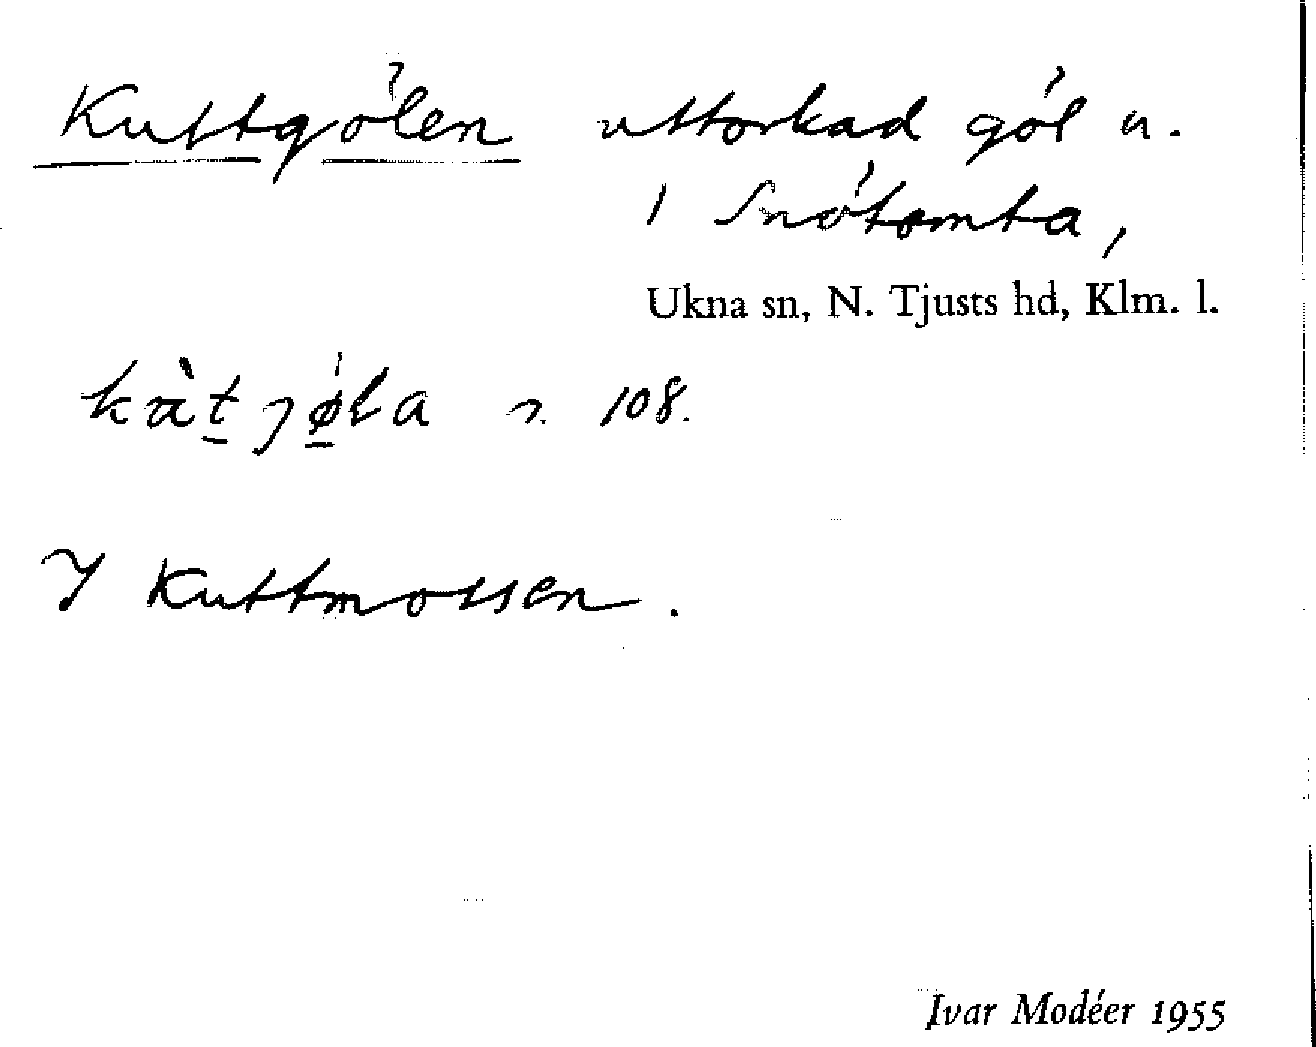 Kuttgölen uttorkad göl n.
i Snötomta,
Ukna sn, N. Tjusts hd, Klm. l.
108.
I Kuttmossen.
Ivar Modéer 1955